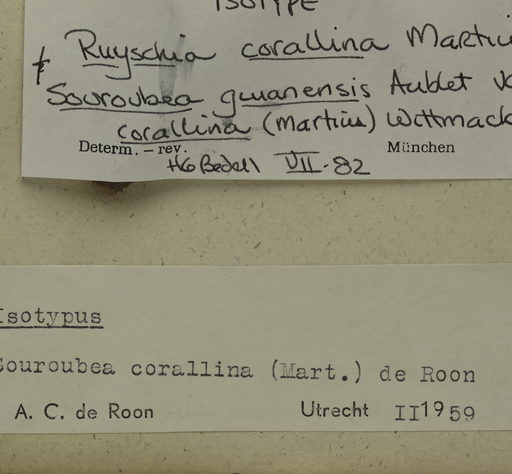 ISOTYPE
Ruyschia corallina Martiu
Souroubea guianensis Aublet va
corallina (Martius) Wittmack
Determ. – rev. München
HG Bedell VII-82
Isotypus
Souroubea corallina (Mart.) de Roon
A. C. de Roon Utrecht II1959